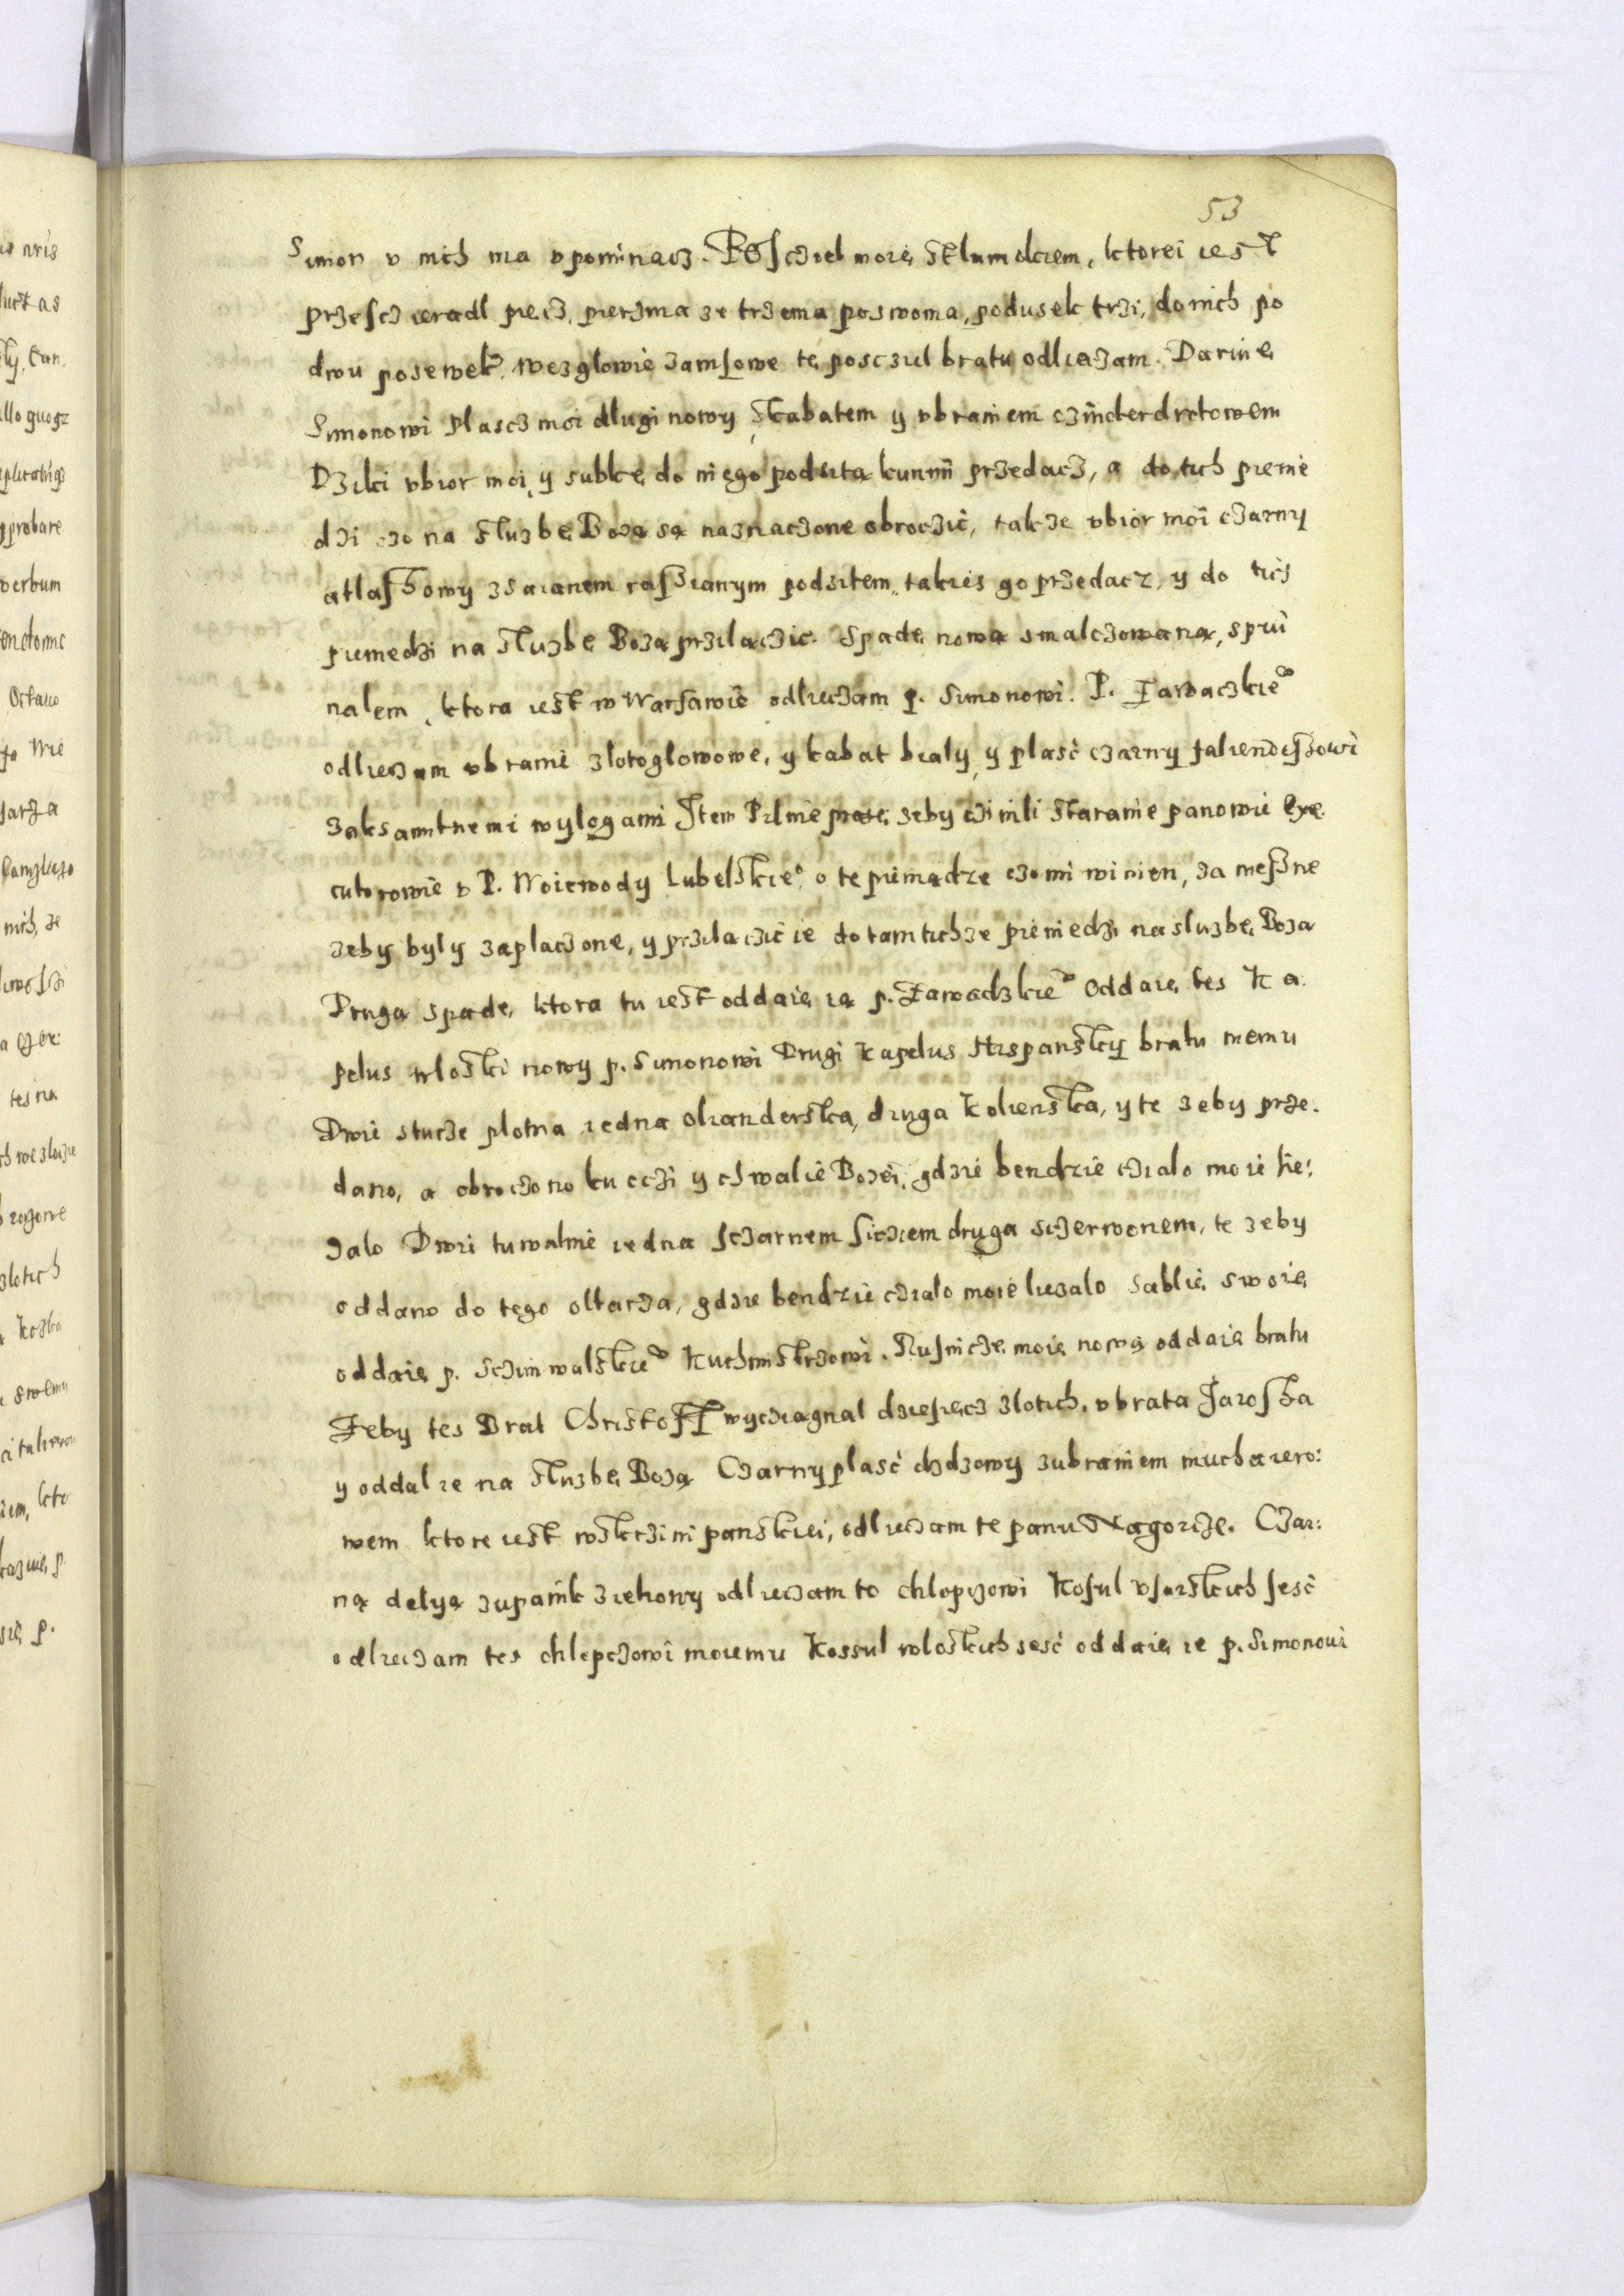 53
Simon v nich ma vpominacz. Posczיel moię stlumokiem, ktorei iest
przesczieradl pięcz, pierzina ze trzema poswoma, podusek trzi, do nich po
dwu posewek. wezglowie zamsowe tę posczיel bratu odliczam. Daruię
Simonowi Plascz moi dlugi nowy skabatem y vbraniem czincterdrotowem
Dziki vbior moi, y subkę do niego podsitą kunmi przedacz, a do tich pienie
dzi czo na sluzbę Bozą są naznaczone obroczic, takze vbior moi czarny
atlaszowy zsaianem raszianym podsitem, takies go przedacz, y do tich
pieniedzi na sluzbę Boza przilaczic. Spadę nowa smalczowaną, spui
nalem, ktora iest w Warsawie odliczam p. Simonowi. P. Zawaczkieo
odliczam vbranie zlotoglowowe, y kabat bialy, y plasc czarny faliendiszowi
zaksamitnemi wylogami Item Pilnie proszę zeby czinili staranie panowie Exe
cutorowie v P. Woiewody Lubelskieo o te pieniądze czo mi winien, za mesne
zeby byly zaplaczone, y przilaczic ie do tamtich ze pieniedzi na sluzbę Boza
Druga spadę, ktora tu iest oddaię ią p. Zawadzkieo Oddaię tes Ka
pelus wloski nowy p. Simonowi Drugi Kapelus Hispanskij bratu memu
Dwie stucze plotna iedna olianderska, druga Kolienska, y te zeby prze.
dano, a obroczono ku cczi y chwalie Bozei, gdzie bendzie czialo moie lie:
zalo Dwie tuwalnie iedna sczarnem siczיem druga sczerwonem, te zeby
oddano do tego oltarza, gdzie bendzie czialo moie liezalo Sablię swoię
oddaię p. Schinwalskieo Kuchmistrzowi. Rusniczę moię nową oddaię bratu
Zeby tes Brat Christoff wycziagnal dziesięcz zlotich, v brata Jarosza
y oddal ie na sluzbę Bozą Czarny plasc dzdzowy zubraniem muchaiero:
wem ktore iest wskrzini panskiei, odliczam te panu Nagorcze. Czar:
ną delyą zupanik ziekowy odliczam to chlopczowi Kosul vsarskich sesc
odliczam tes chlopczowi moiemu Kossul wloskich sesc oddaię ie p. Simonowi